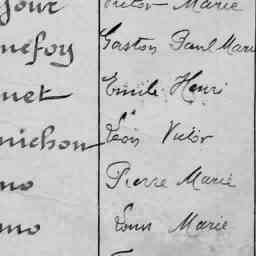 Victor Marie
nefoy Gaston Paul Mari
met Emile Henri
nichon Léon Victor
no Pierre Marie
mo Louis Marie